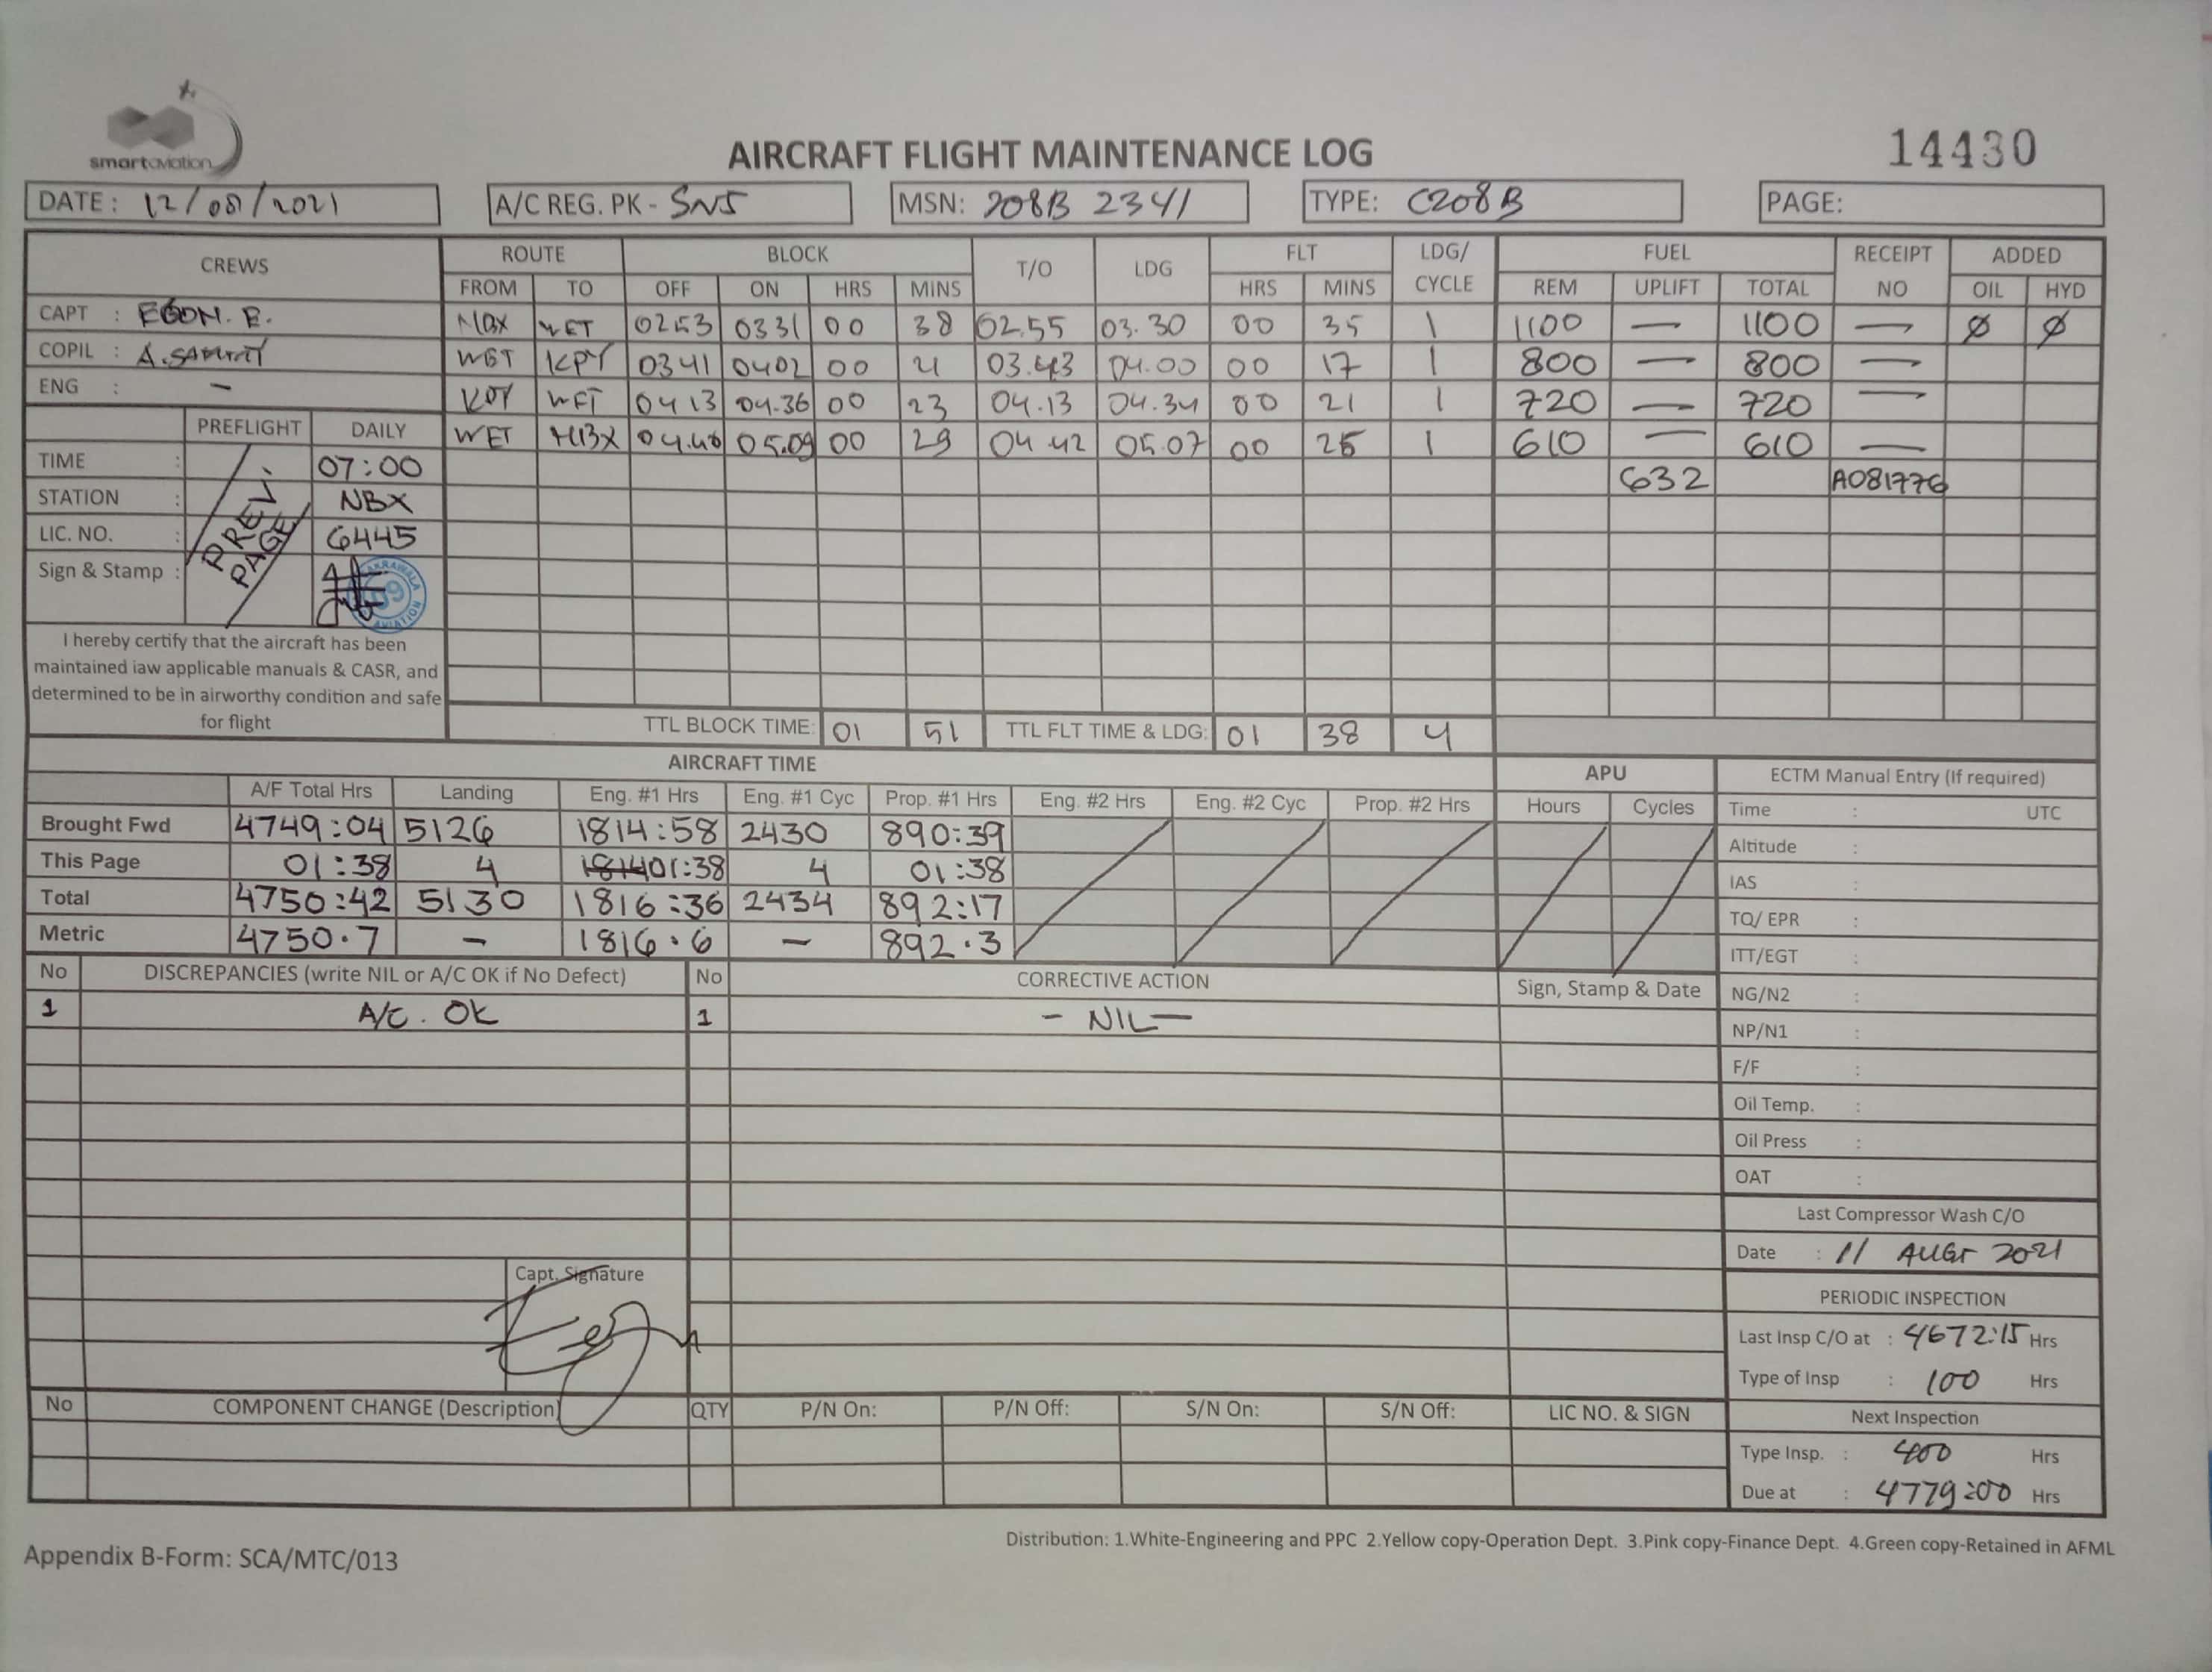 smartaviation
AIRCRAFT FLIGHT MAINTENANCE LOG
14430
DATE: 12/08/2021
A/C REG. PK - SNJ
MSN: 208B 2341
TYPE: C208B
PAGE:
CREWS ROUTE BLOCK T/O LDG FLT LDG/ CYCLE FUEL RECEIPT NO ADDED
FROM TO OFF ON HRS MINS HRS MINS REM UPLIFT TOTAL OIL HYD
CAPT : EGON. E. NBX WET 0253 0331 00 38 02.55 03.30 00 35 1 1100 — 1100 — Ø Ø
COPIL : A. WET KPY 0341 0402 00 21 03.43 04.00 00 17 1 800 — 800 —
ENG : - KPY WET 0413 04.36 00 23 04.13 04.34 00 21 1 720 — 720 —
PREFLIGHT DAILY WET NBX 04.40 05.09 00 29 04 42 05.07 00 25 1 610 — 610 —
TIME : 07:00 632 A081776
STATION : NBX
LIC. NO. : 6445
Sign & Stamp :
PREV. PAGE
I hereby certify that the aircraft has been
maintained iaw applicable manuals & CASR, and
determined to be in airworthy condition and safe
for flight
TTL BLOCK TIME: 01 51 TTL FLT TIME & LDG: 01 38 4
AIRCRAFT TIME APU ECTM Manual Entry (If required)
A/F Total Hrs Landing Eng. #1 Hrs Eng. #1 Cyc Prop. #1 Hrs Eng. #2 Hrs Eng. #2 Cyc Prop. #2 Hrs Hours Cycles Time : UTC
Brought Fwd 4749:04 5126 1814:58 2430 890:39
Altitude :
This Page 01:38 4 01:38 4 01:38
IAS :
Total 4750:42 5130 1816:36 2434 892:17
TQ/ EPR :
Metric 4750.7 - 1816.6 - 892.3
ITT/EGT :
No DISCREPANCIES (write NIL or A/C OK if No Defect) No CORRECTIVE ACTION Sign, Stamp & Date NG/N2 :
1 A/C. OK 1 - NIL -
NP/N1 :
F/F :
Oil Temp. :
Oil Press :
OAT :
Last Compressor Wash C/O
Date : 11 AUGT 2021
Capt. Signature
PERIODIC INSPECTION
Last Insp C/O at : 4672:15 Hrs
Type of Insp : 100 Hrs
No COMPONENT CHANGE (Description) QTY P/N On: P/N Off: S/N On: S/N Off: LIC NO. & SIGN Next Inspection
Type Insp. : 400 Hrs
Due at : 4779:00 Hrs
Distribution: 1.White-Engineering and PPC 2.Yellow copy-Operation Dept. 3.Pink copy-Finance Dept. 4.Green copy-Retained in AFML
Appendix B-Form: SCA/MTC/013